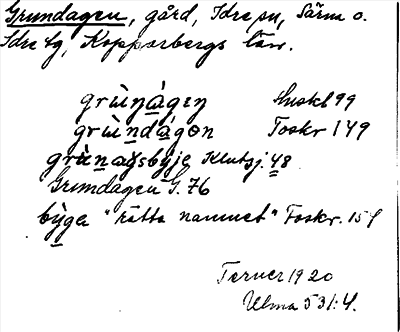 Grundagen, gård, Idre sn, Särna o.
Idre tg, Kopparbergs län.
grùṇágen Huskl 99
grùndágon Foskr 149
grùnagsbyje Klutsj. 48
Grundagen G. 76
býga "rätta namnet" Foskr. 154
Farner 1920
Ulma 531:4.